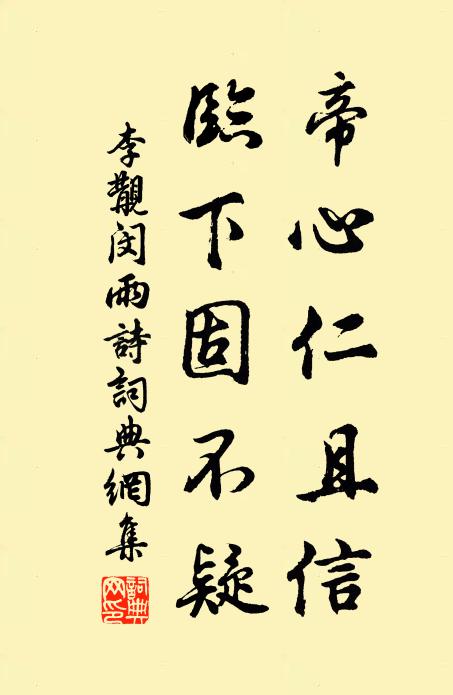 帝心仁且信
臨下固不疑
李覯閔雨詩詞典網集
詞典網印